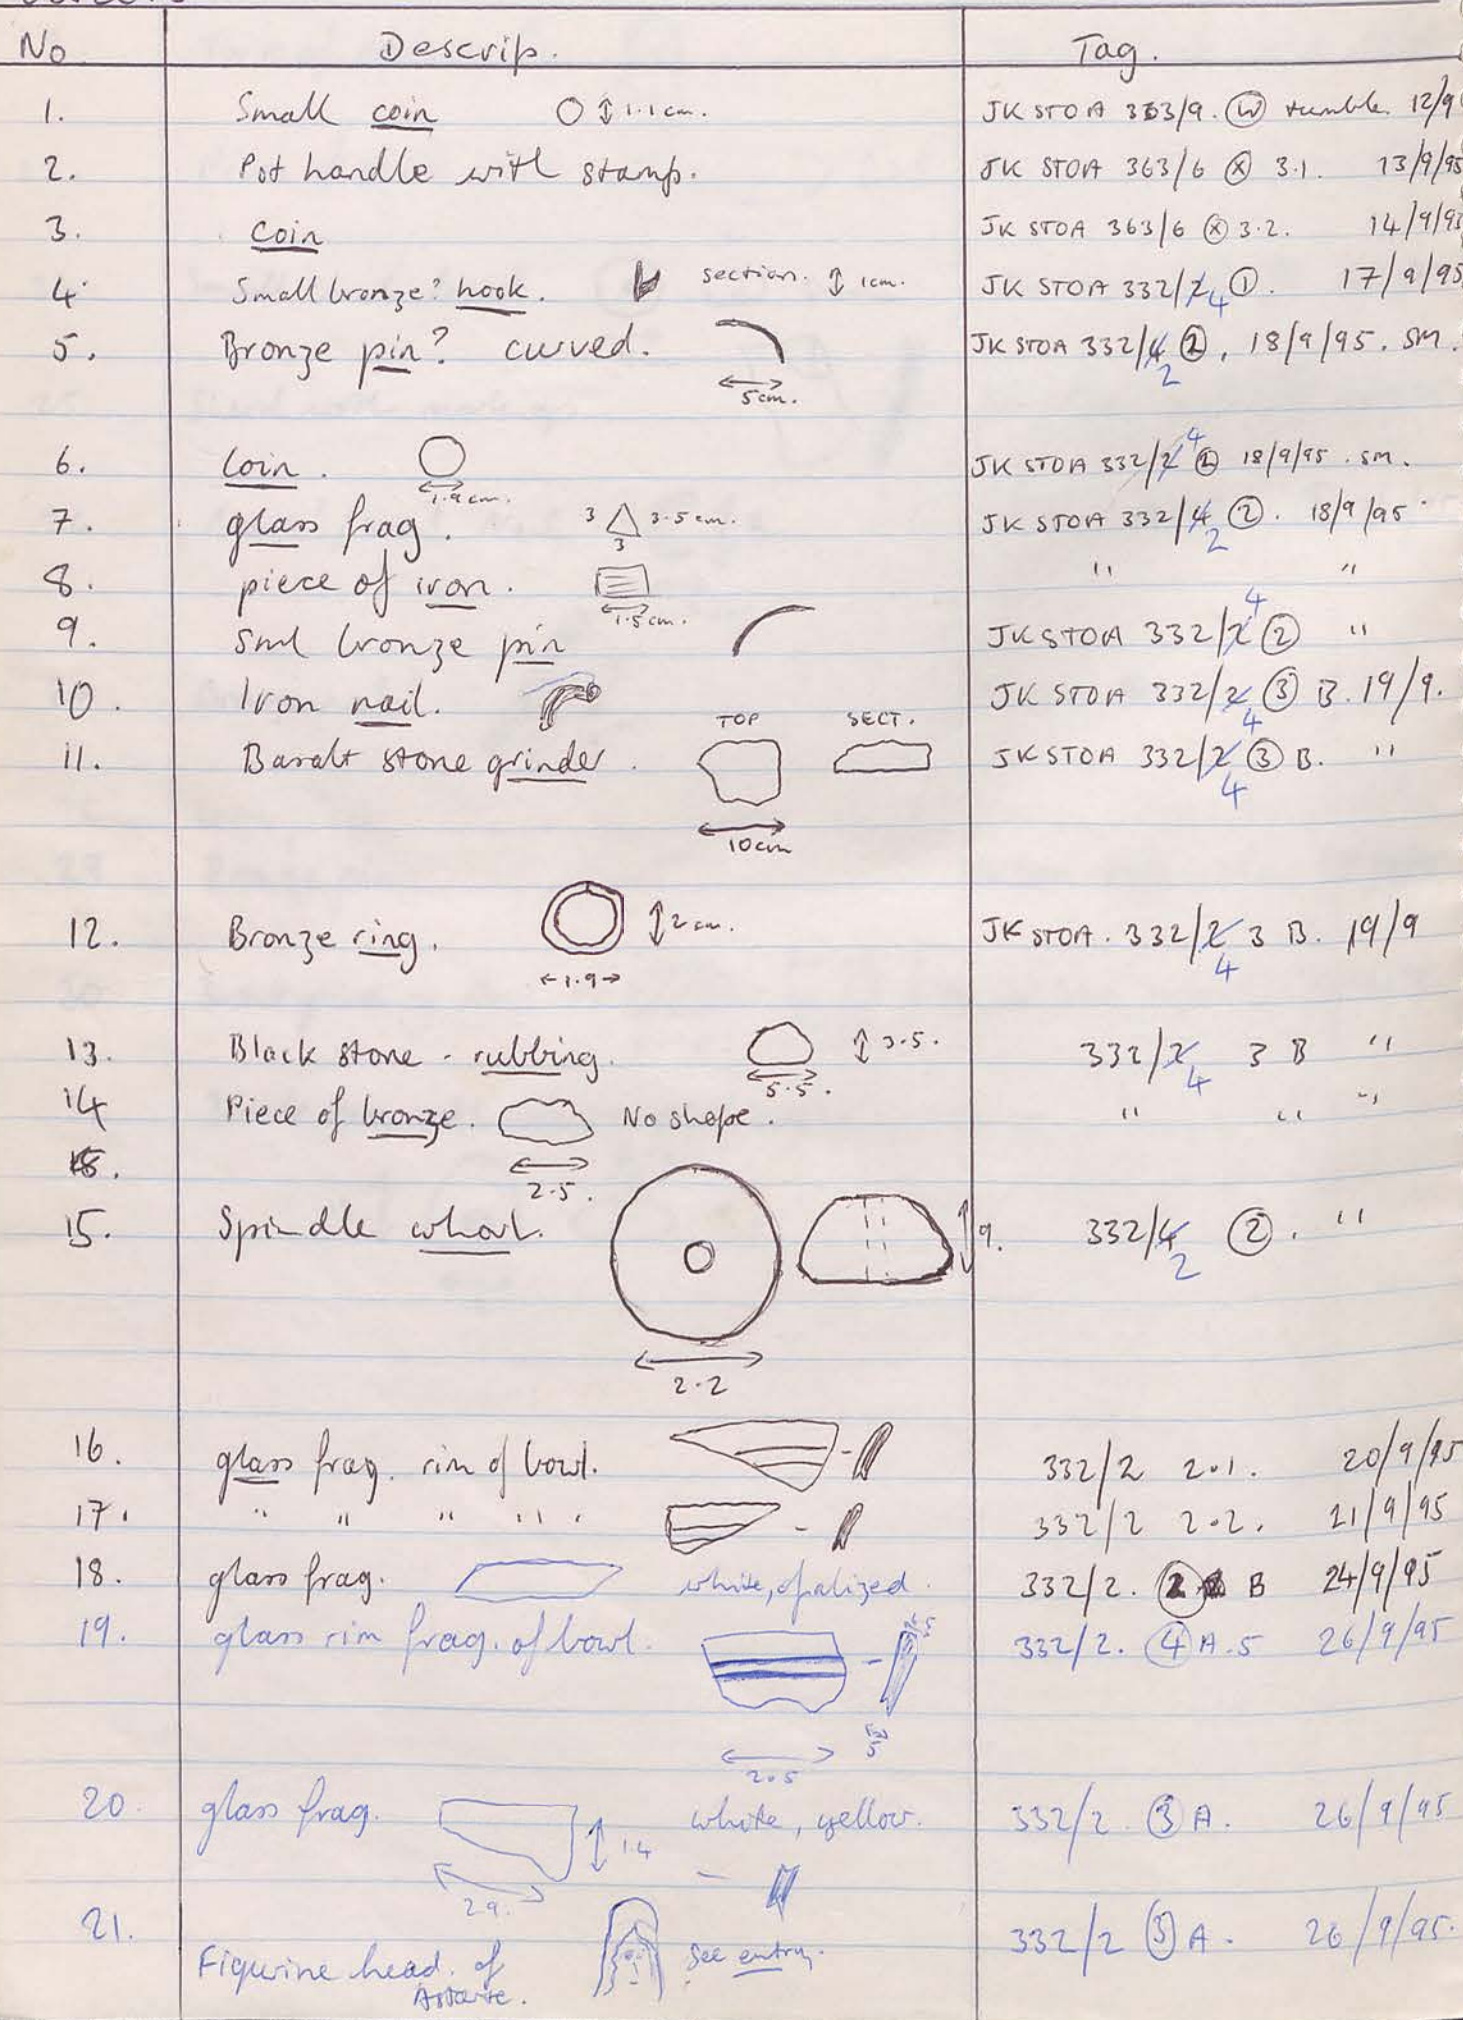 No Descrip. Tag.
1. Small coin 1.1cm. JK STOA 363/9. W tumble. 12/9
2. Pot handle with stamp. JK STOA 363/6 X 3.1. 13/9/95
3. Coin JK STOA 363/6 X 3.2. 14/9/95
4. Small bronze? hook. section. 1cm. JK STOA 332/2 4 1. 17/9/95
5. Bronze pin? curved. 5cm. JK STOA 332/4 2 2, 18/9/95. SM.
6. Coin. 1.9cm. JK STOA 332/2 4 2 18/9/95. SM.
7. glass frag. 3 3.5cm. 3 JK STOA 332/4 2 2. 18/9/95
8. piece of iron. 1.5cm. " "
9. Sml bronze pin JK STOA 332/2 4 2 "
10. Iron nail. JK STOA 332/2 4 3 B. 19/9.
TOP SECT.
11. Basalt stone grinder. JK STOA 332/2 4 3 B. "
10cm
12. Bronze ring. 2cm. JK STOA. 332/2 4 3 B. 19/9
1.9
13. Black stone - rubbing. 3.5. 332/2 4 3 B "
5.5.
14 Piece of bronze. No shape. " " "
2.5.
15. Spindle whorl. 9. 332/4 2 2. "
2.2
16. glass frag. rim of bowl. 332/2 2.1. 20/9/95
17. " " " " " 332/2 2.2. 21/9/95
18. glass frag. white, opalized. 332/2. 2 B 24/9/95
19. glass rim frag. of bowl. 332/2. 4 A.5 26/9/95
2.5
20. glass frag. 1.4 white, yellow. 332/2. 3 A. 26/9/95
2.9.
21. Figurine head of Astarte. See entry. 332/2 5 A. 26/9/95.